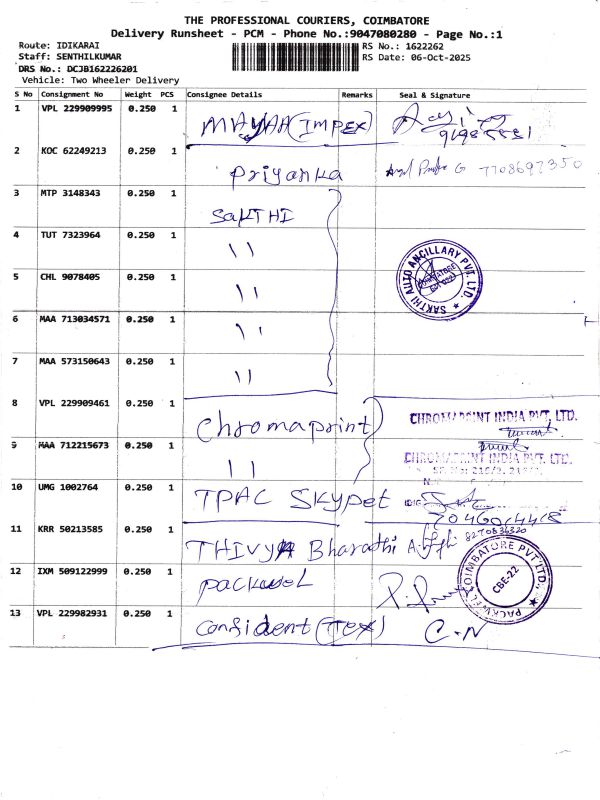 THE PROFESSIONAL COURIERS, COIMBATORE
Delivery Runsheet - PCM - Phone No.:9047080280 - Page No.:1
Route: IDIKARAI RS No.: 1622262
Staff: SENTHILKUMAR RS Date: 06-Oct-2025
DRS No.: DCJB162226201
Vehicle: Two Wheeler Delivery
S No Consignment No Weight PCS Consignee Details Remarks Seal & Signature
1 VPL 229909995 0.250 1 (IMPEX)
2 KOC 62249213 0.250 1 Priyanka G 7708697350
3 MTP 3148343 0.250 1 SAKTHI
4 TUT 7323964 0.250 1 11
SAKTHI AUTO ANCILLARY PVT. LTD. COIMBATORE
5 CHL 9078405 0.250 1 11
6 MAA 713034571 0.250 1 11
7 MAA 573150643 0.250 1 11
8 VPL 229909461 0.250 1 Chromaprint CHROMAPRINT INDIA PVT. LTD.
9 MAA 712215673 0.250 1 11 CHROMAPRINT INDIA PVT. LTD.
10 UMG 1002764 0.250 1 TPAC SKYpet
11 KRR 50213585 0.250 1 THIVYA Bharathi A 8270836320
12 IXM 509122999 0.250 1 packwel
PACKWEL COIMBATORE PVT LTD. CBE-22
13 VPL 229982931 0.250 1 Confident (TEX) C.N